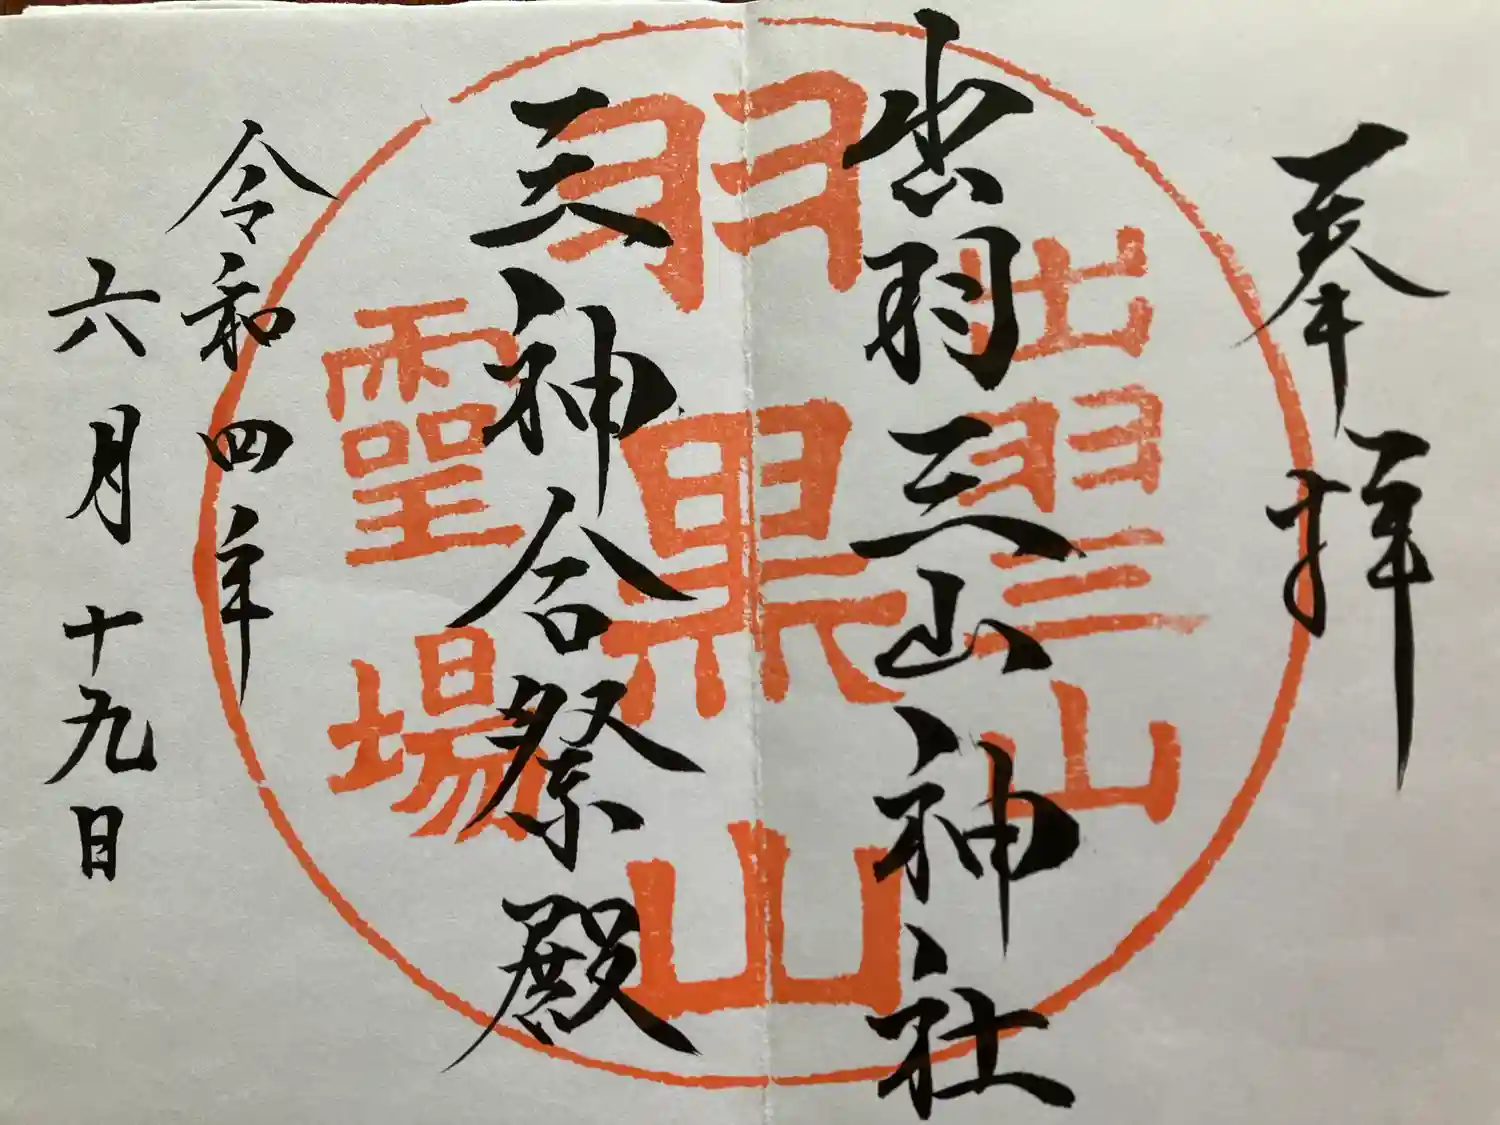 奉拝
出羽三山神社
三神合祭殿
令和四年
六月十九日
出羽三山
羽黒山
霊場